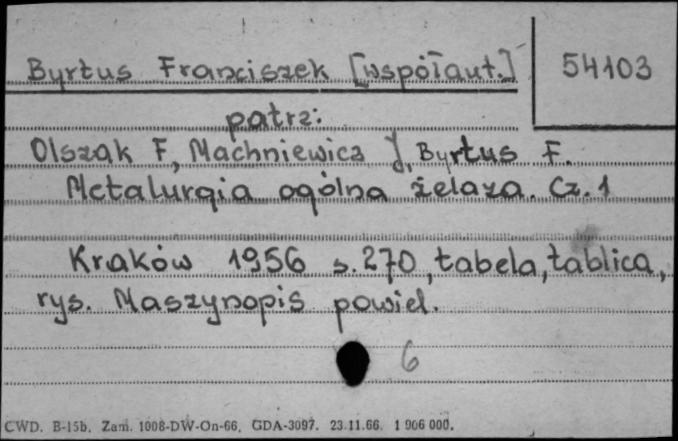 Byrtus Franciszek [współaut.]
54103
patrz:
Olszak F., Machniewicz J., Byrtus F.
Metalurgia ogólna żelaza. Cz. 1
Kraków 1956 s. 270, tabela, tablica,
rys. Maszynopis powiel.
6
CWD. B-15b. Zam. 1008-DW-On-66. GDA-3097. 23.11.66. 1 906 000.